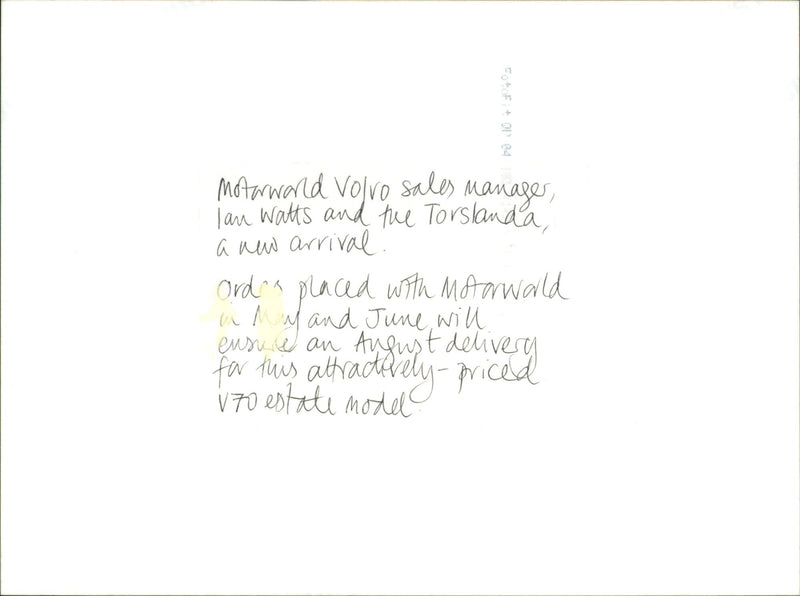 Motorworld Volvo sales manager,
Ian Watts and the Torslanda,
a new arrival.
Orders placed with Motorworld
in May and June will
ensure an August delivery
for this attractively-priced
V70 estate model.